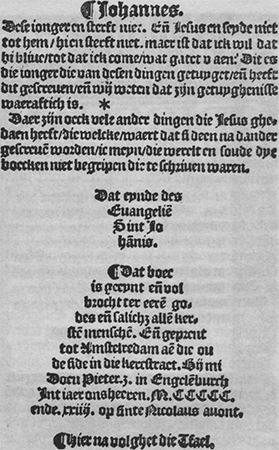 ¶Johannes.
Dese iongeren sterft niet. Eñ Jesus en seyde niet
tot hem/ hi en sterft niet. maer ist dat ick wil dat
hi blive/ tot dat ick come/ wat gatet v aen? Dit es
die ionger die van desen dingen getuyget/ eñ heeft
dit gescreuen/ eñ wij weten dat zijn getuyghenisse
waerastich is. *
Daer zijn oeck vele ander dingen die Jesus ghe
daen heeft/ die welcke/ waert dat si deen na dander
gescreuē worden/ ic meyn/ die werelt en soude dye
boecken niet begripen die te schriuen waren.
Dat eynde des
Euangeliē
Sint Jo
hānis.
¶Dat boec
is geeynt eñ vol
brocht ter eerē go⸗
des eñ salich; allē ker⸗
stē menschē. Eñ geprent
tot Amstelredam aē die ou
de side in die kercstraet. Bij mi
Doen Pieter.z. in Engelēburch
Int iaer ons heeren. M.CCCCC.
ende. xxiij. op sinte Nicolaus auont.
¶Hier na volghet die Tafel.